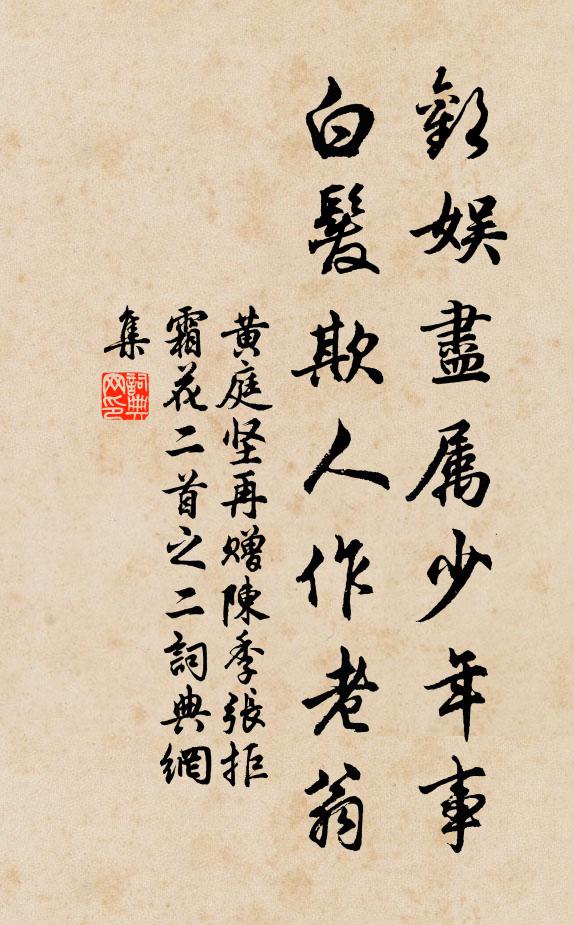 歡娱盡属少年事
白髮欺人作老翁
黄庭坚再赠陳季張拒
霜花二首之二詞典網
集
詞典
网印